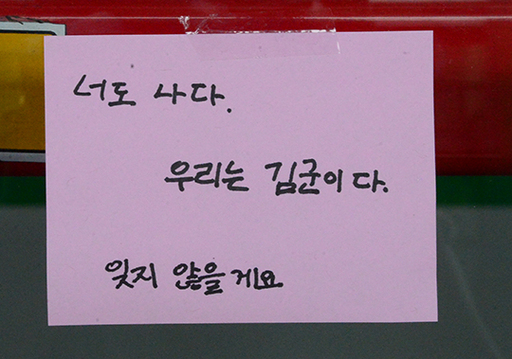 너도 나다.
우리는 김군이다.
잊지 않을게요